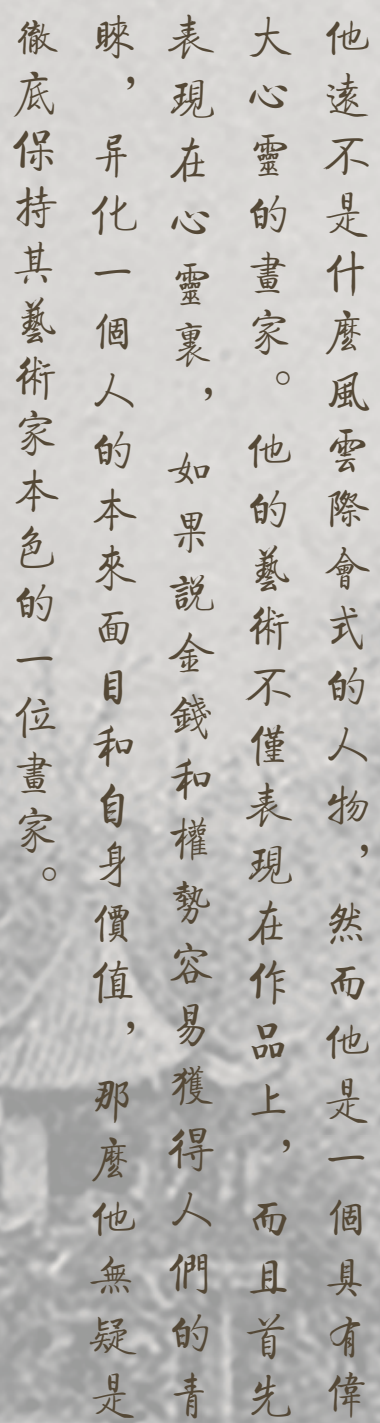 他遠不是什麼風雲際會式的人物，然而他是一個具有偉
大心靈的畫家。他的藝術不僅表現在作品上，而且首先
表現在心靈裏，如果説金錢和權勢容易獲得人們的青
睞，异化一個人的本來面目和自身價值，那麼他無疑是
徹底保持其藝術家本色的一位畫家。